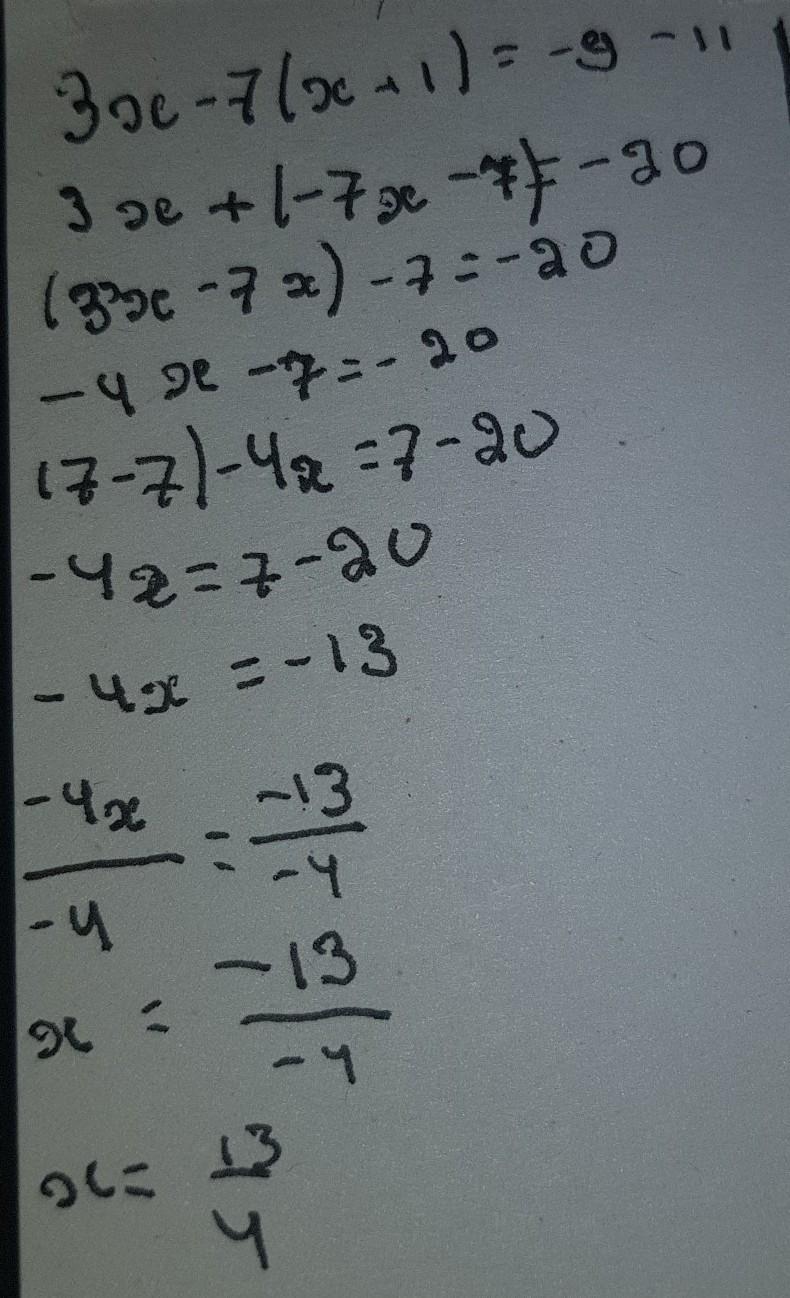 3x - 7(x + 1) = -9 - 11
3x + (-7x - 7) = -20
(3x - 7x) - 7 = -20
-4x - 7 = -20
(7 - 7) - 4x = 7 - 20
-4x = 7 - 20
-4x = -13
-4x/-4 = -13/-4
x = -13/-4
x = 13/4